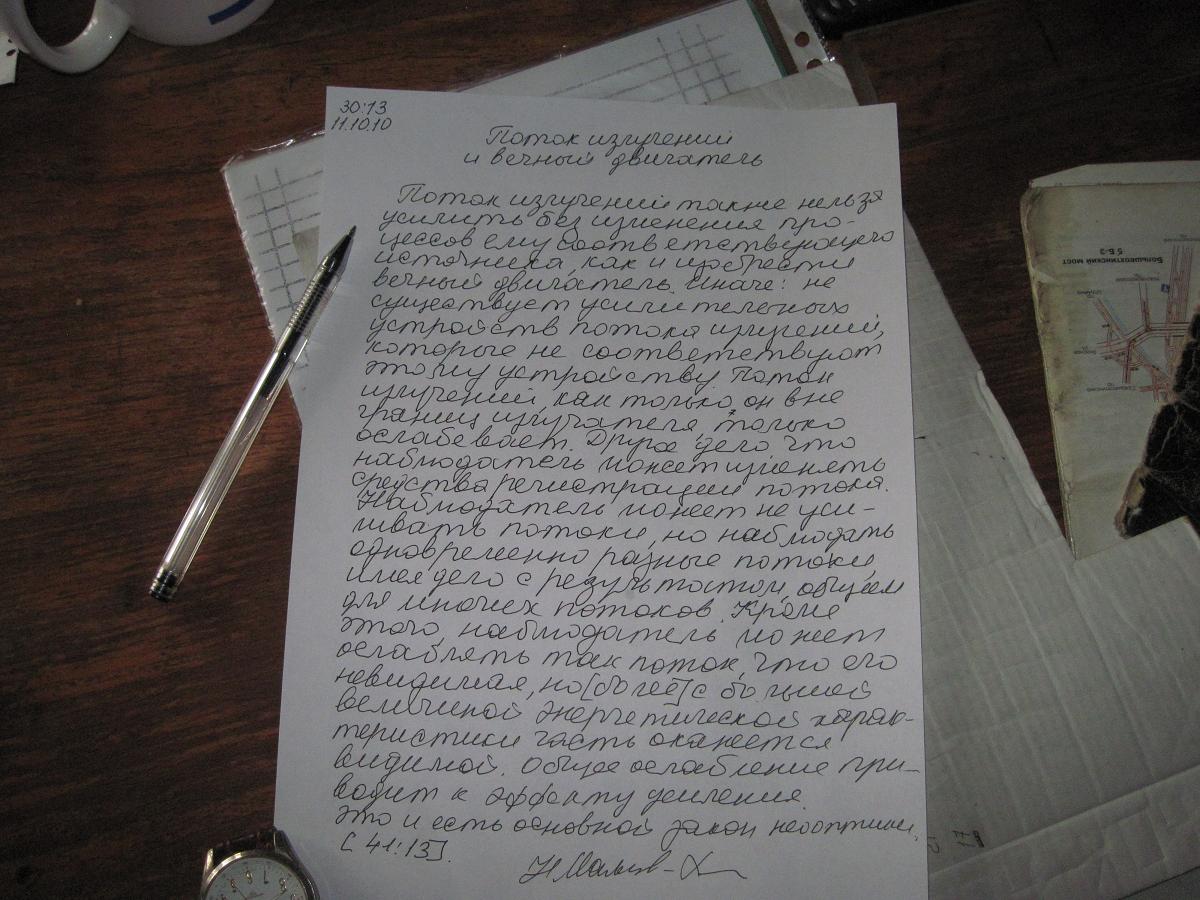 30:13
11.10.10
Поток излучений
и вечный двигатель
Поток излучений также нельзя
усилить без изменения про-
цессов ему соответствующего
источника, как и изобрести
вечный двигатель. Иначе: не
существует усилительных
устройств потока излучений,
которые не соответствуют
этому устройству. Поток
излучений, как только он вне
границ излучателя, только
ослабевает. Другое дело, что
наблюдатель может изменять
средства регистрации потока.
Наблюдатель может не уси-
ливать потоки, но наблюдать
одновременно разные потоки,
имея дело с результатом, общим
для многих потоков. Кроме
этого, наблюдатель может
ослаблять так поток, что его
невидимая, но [более] с большей
величиной энергетической харак-
теристики часть окажется
видимой. Общее ослабление при-
водит к эффекту усиления.
Это и есть основной закон неооптики.
[41:13].
БОЛЬШЕОХТИНСКИЙ МОСТ
5 Б-3